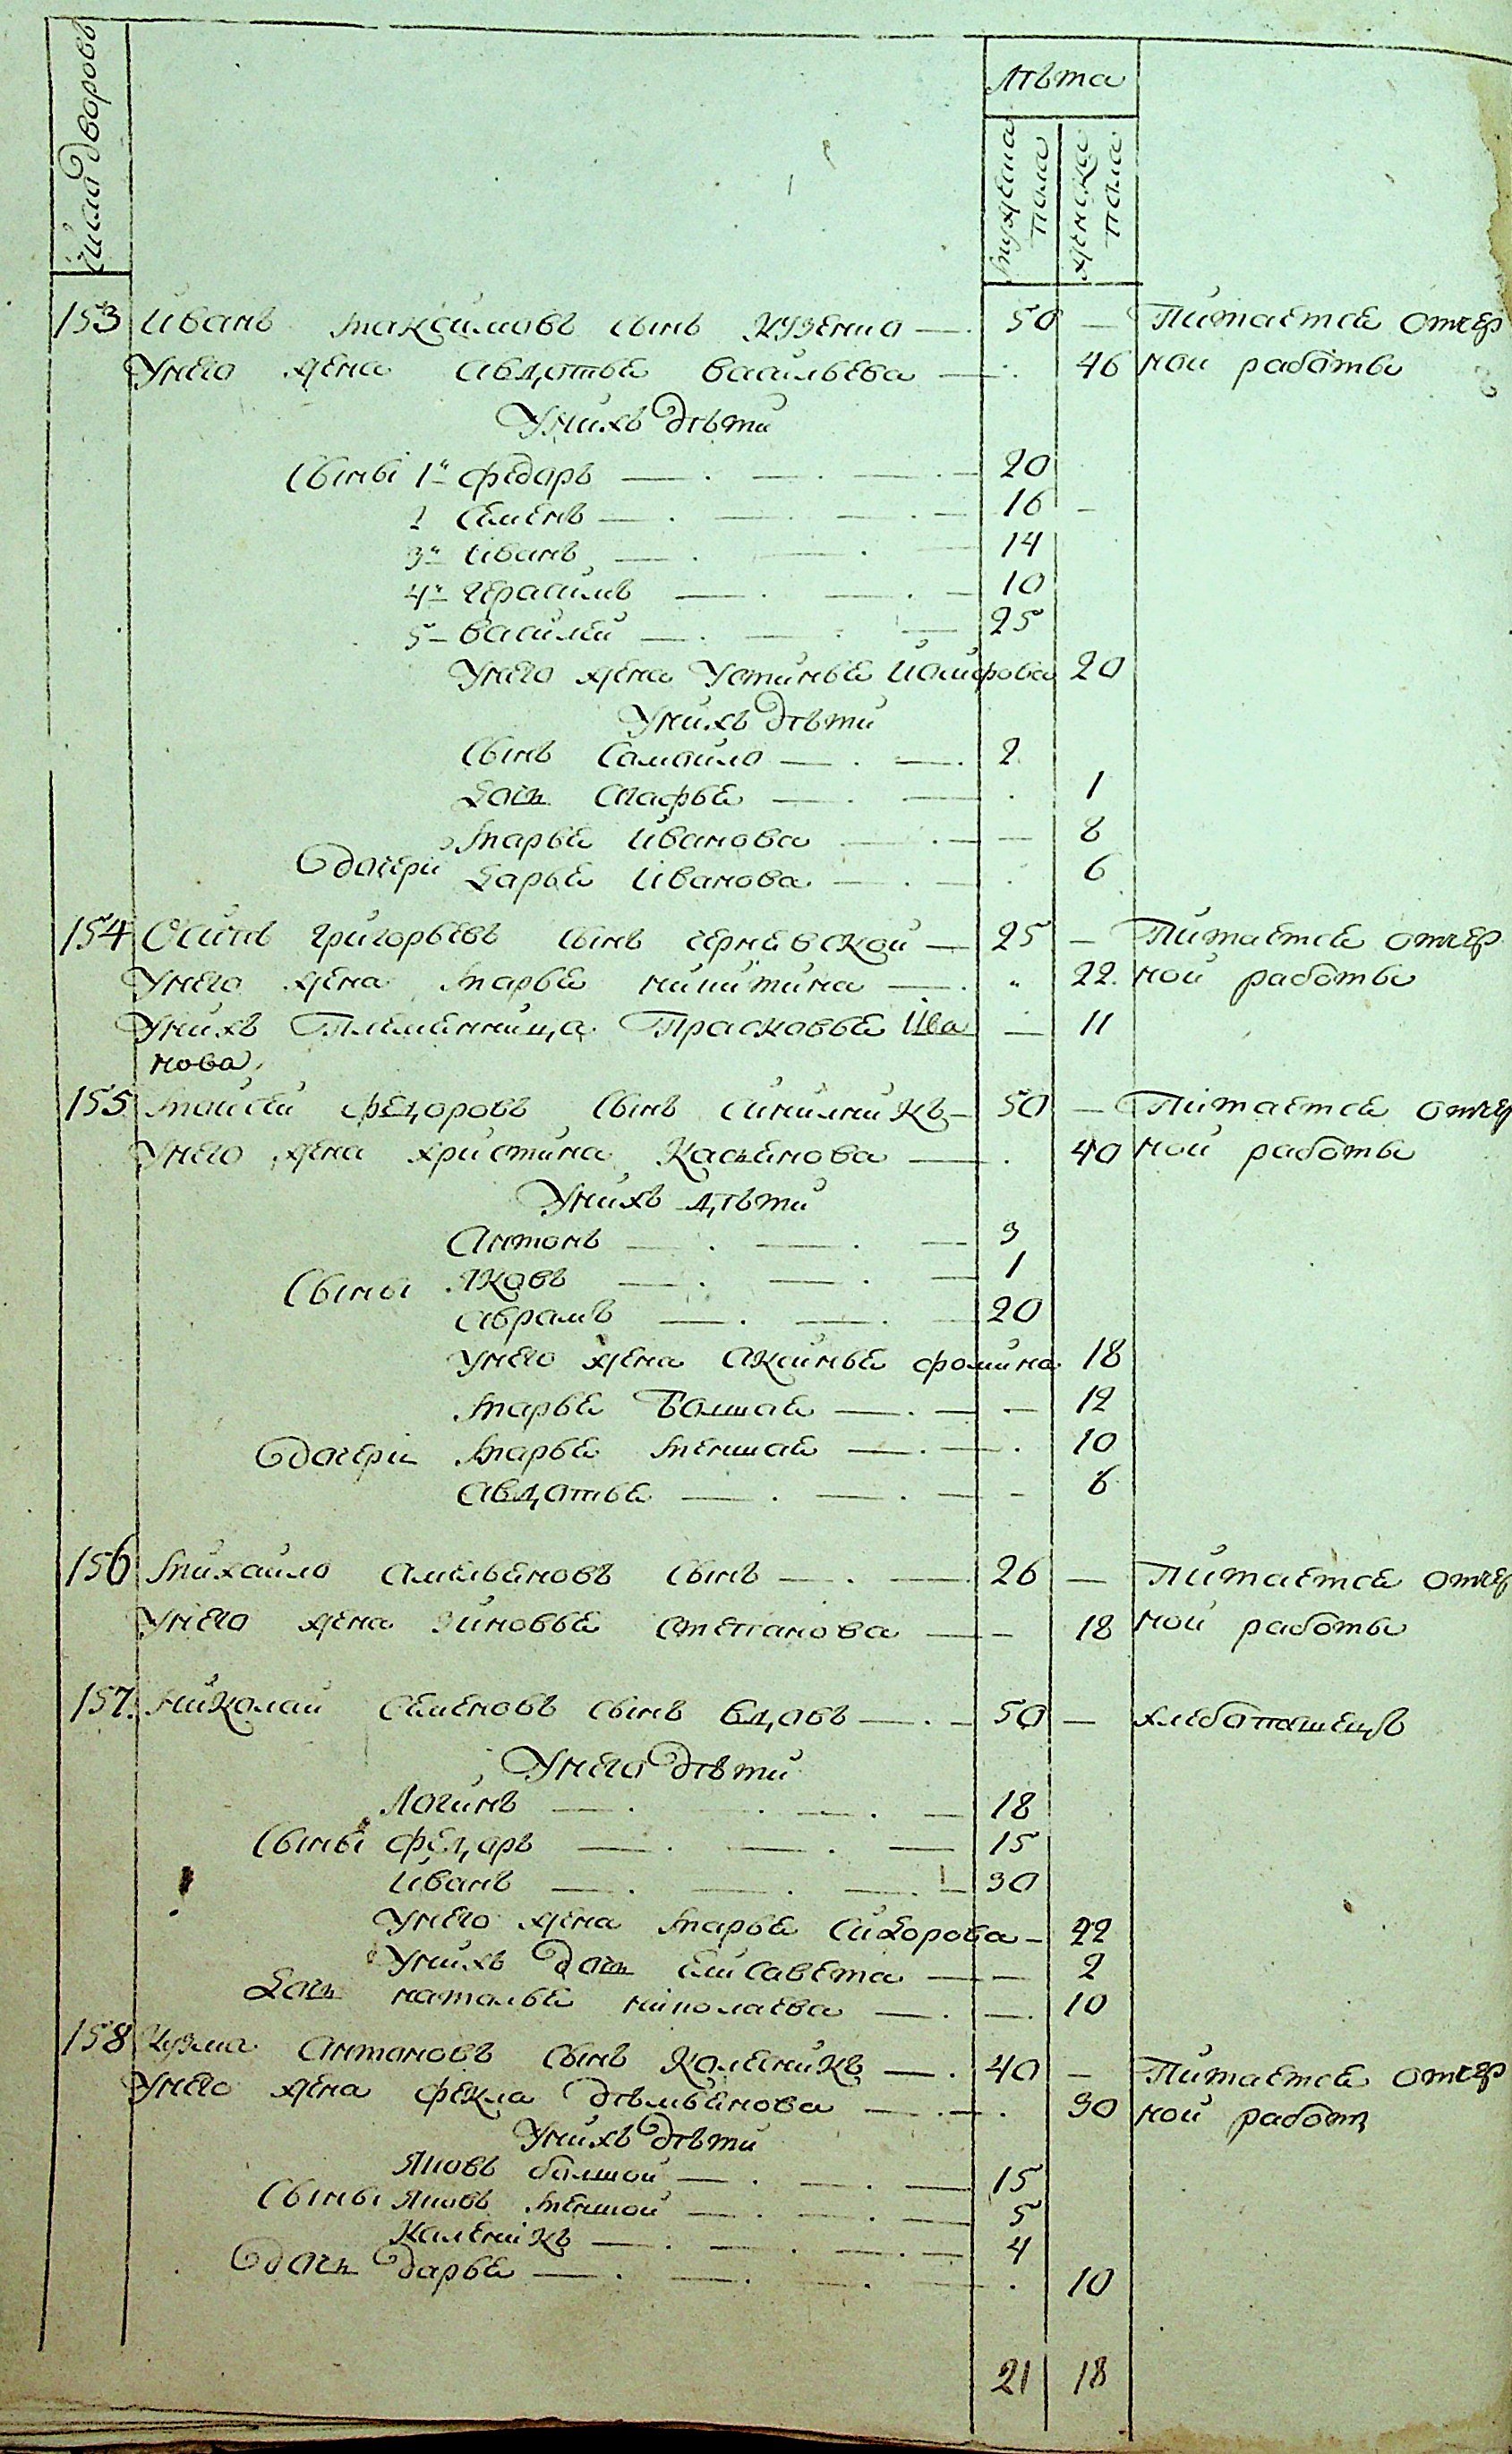 число дворовъ
Лѣта
мужеска пола
женска пола
153 Иванъ Максимовъ сынъ Кузенко — 50 — Питается отчер
У него жена Авдотья Васильева — 46 ной работы
У нихъ дѣти
сыны 1й Федаръ — 20
2 Семенъ — 16 —
3й Иванъ — 14
4й Герасимъ — 10
5 — Василей — 25
У него жена Устинья Иосифова 20
У нихъ дѣти
сынъ Самойло — 2
Дочь Агафья — 1
Марья Иванова — 8
дочери Дарья Иванова — 6
154 Осипъ Григорьевъ сынъ Черневской — 25 — Питается отчер
У него жена Марья Никитина — 22 ной работы
У нихъ Племянница Прасковья Ива — 11
нова
155 Мойсей Федоровъ сынъ Синилникъ — 50 — Питается отчер
У него жена Христина Касьянова — 40 ной работы
У нихъ дѣти
Антонъ — 3
Сыны Яковъ — 1
Абрамъ — 20
У него жена Аксинья Фомина 18
Марья Болшая — 12
дочери Марья Меншая — 10
Авдотья — 6
156 Михайло Амельяновъ сынъ — 26 — Питается отчер
У него жена Зиновья Степанова — 18 ной работы
157 Николай Семеновъ сынъ вдовъ — 50 — хлебопашецъ
У него дѣти
Логинъ — 18
Сыны Федаръ — 15
Иванъ — 30
У него жена Марья Сидорова — 22
У нихъ дочь Елисавета — 2
Дочь Наталья Николаева — 10
158 Кузма Антоновъ сынъ Колесникъ — 40 — Питается отчер
У него жена Фекла Дѣмьянова — 30 ной работы
У нихъ дѣти
Яковъ болшой — 15
Сыны Яковъ меншой — 5
Каленикъ — 4
дочь Дарья — 10
21 18